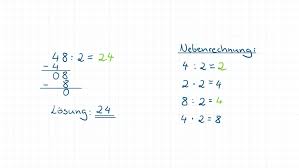 48 : 2 = 24
- 4
08
- 8
0
Lösung: 24
Nebenrechnung:
4 : 2 = 2
2 · 2 = 4
8 : 2 = 4
4 · 2 = 8